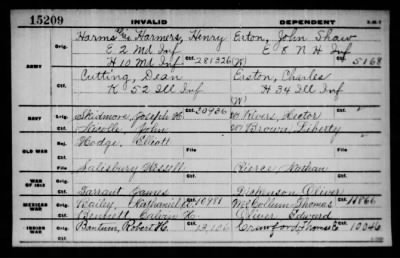 15209 INVALID DEPENDENT
Harms or Harmers, Henry Exton, John Shaw
Orig. E 2 Md Inf E 8 N H Inf
H 10 Md Inf Ctf. 281326 (W) Ctf. 5168
ARMY
Cutting, Dean Easton, Charles
Orig. K 52 Ill Inf H 34 Ill Inf
Ctf. (W)
NAVY Orig. Skidmore, Joseph H. Ctf. 20936 W Rivers, Hector
Ctf. John W Brown, Liberty
OLD WAR Hodge, Elliott File
Salisbury File Pierce Nathan
WAR OF 1812 Orig. Tarrant James Dickinson Oliver
Ctf.
MEXICAN WAR Orig. Bailey, Nathaniel Ctf. McCollum Thomas Ctf. 
Ctf. Bennett Calvin H. Oliver Edward
INDIAN WAR Orig. Bantum, Robert H. 13,106 Crawford, Thomas E 10046
Ctf.